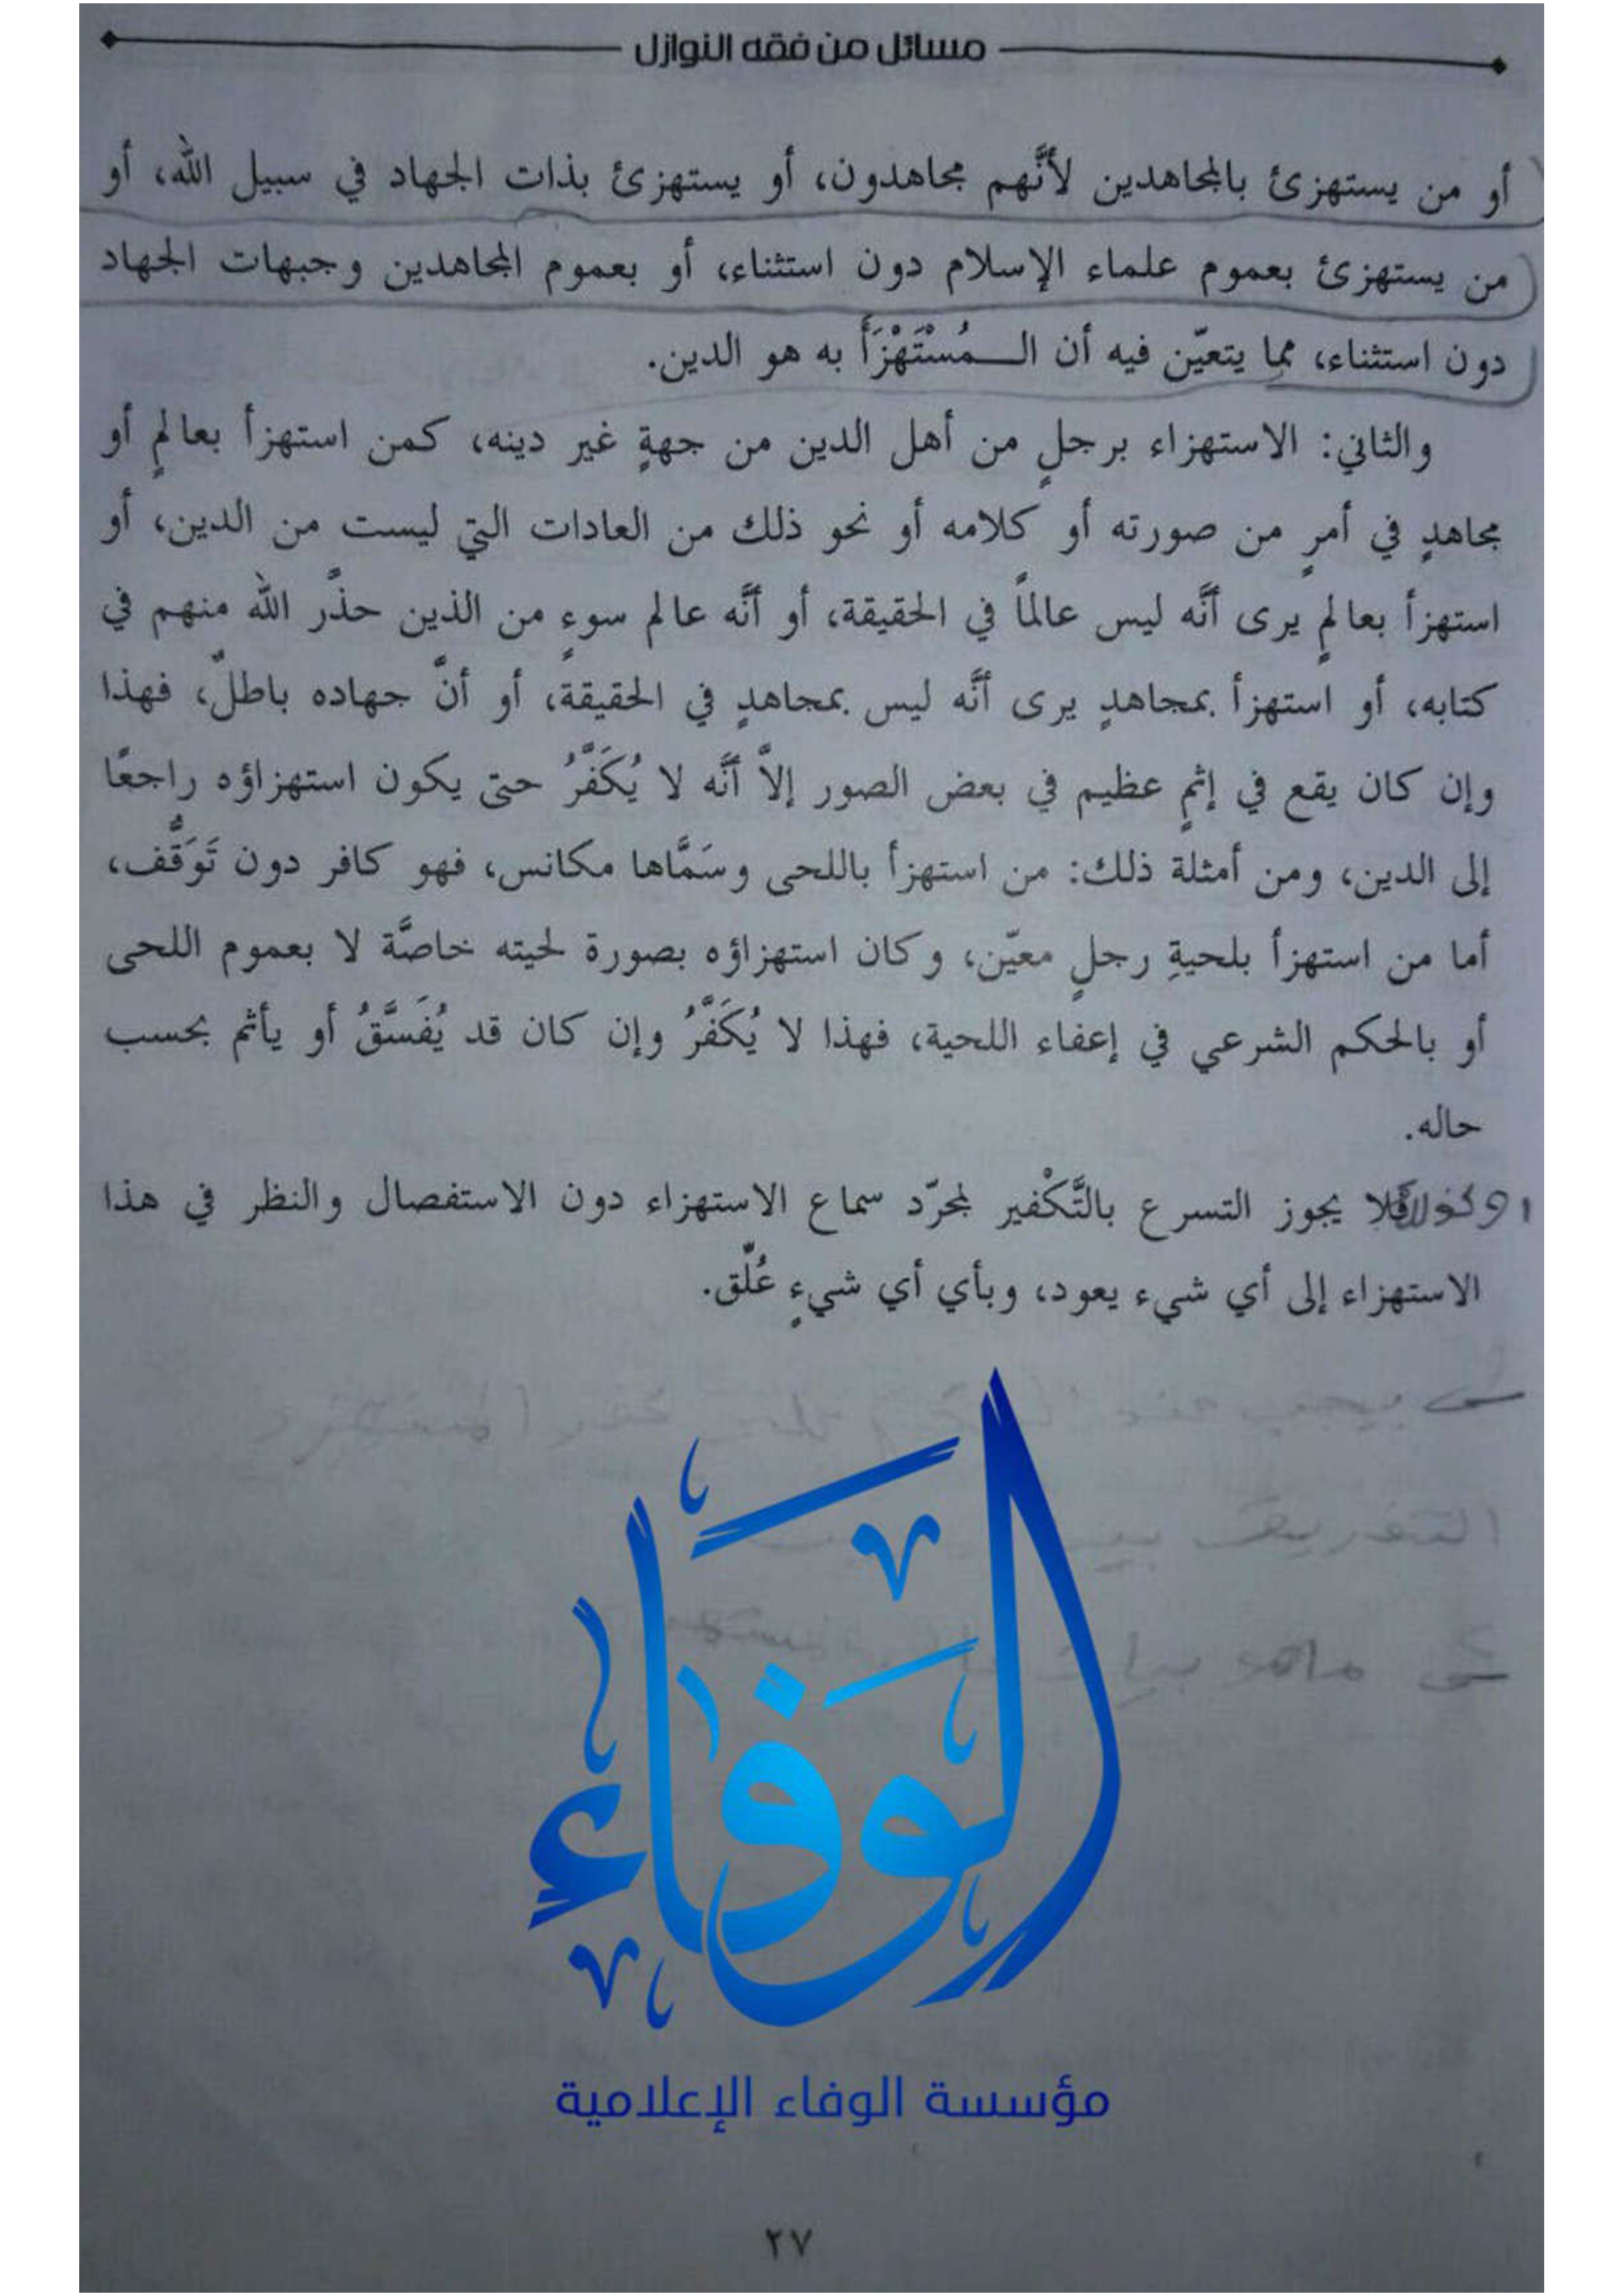 مسائل من فقه النوازل
أو من يستهزئ بالمجاهدين لأنَّهم مجاهدون، أو يستهزئ بذات الجهاد في سبيل الله، أو
من يستهزئ بعموم علماء الإسلام دون استثناء، أو بعموم المجاهدين وجبهات الجهاد
دون استثناء، مما يتعيّن فيه أن الـــمُسْتَهْزَأَ به هو الدين.
والثاني: الاستهزاء برجلٍ من أهل الدين من جهةٍ غير دينه، كمن استهزأ بعالمٍ أو
مجاهدٍ في أمرٍ من صورته أو كلامه أو نحو ذلك من العادات التي ليست من الدين، أو
استهزأ بعالمٍ يرى أنَّه ليس عالماً في الحقيقة، أو أنَّه عالم سوءٍ من الذين حذَّر الله منهم في
كتابه، أو استهزأ بمجاهدٍ يرى أنَّه ليس بمجاهدٍ في الحقيقة، أو أنَّ جهاده باطلٌ، فهذا
وإن كان يقع في إثمٍ عظيم في بعض الصور إلاَّ أنَّه لا يُكَفَّرُ حتى يكون استهزاؤه راجعًا
إلى الدين، ومن أمثلة ذلك: من استهزأ باللحى وسَمَّاها مكانس، فهو كافر دون تَوَقُّف،
أما من استهزأ بلحيةِ رجلٍ معيّن، وكان استهزاؤه بصورة لحيته خاصَّة لا بعموم اللحى
أو بالحكم الشرعي في إعفاء اللحية، فهذا لا يُكَفَّرُ وإن كان قد يُفَسَّقُ أو يأثم بحسب
حاله.
فلا يجوز التسرع بالتَّكْفير لمجرّد سماع الاستهزاء دون الاستفصال والنظر في هذا
الاستهزاء إلى أي شيء يعود، وبأي أي شيءٍ عُلّق.
يجب
التفريق
الوَفَاءَ
مؤسسة الوفاء الإعلامية
٢٧